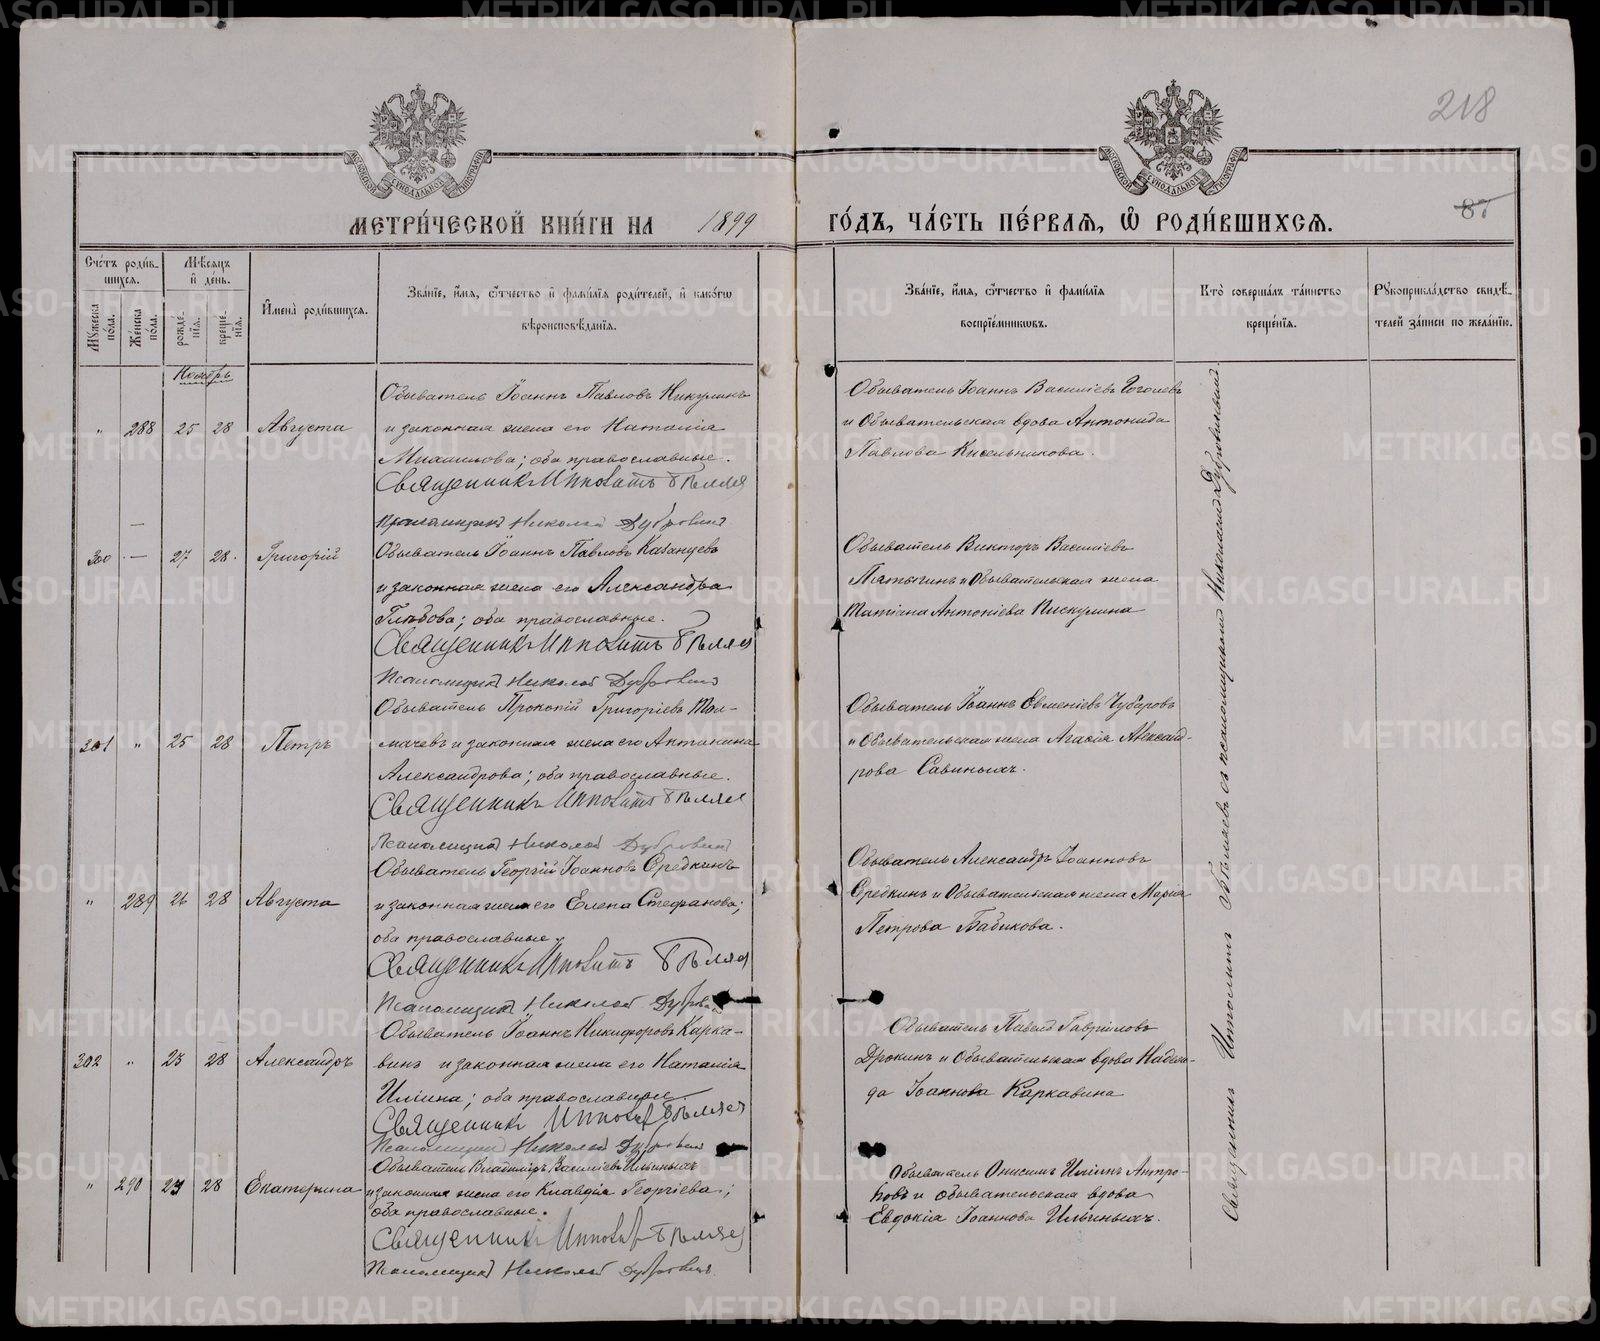 218
87
МОСКОВСКОЙ СѴНОДАЛЬНОЙ ТИПОГРАФІИ
МОСКОВСКОЙ СѴНОДАЛЬНОЙ ТИПОГРАФІИ
МЕТРИ́ЧЕСКОЙ КНИ́ГИ НА 1899 ГО́ДЪ, ЧА́СТЬ ПЕ́РВАЯ, Ѡ҆ РОДИ́ВШИХСЯ.
Сче́тъ роди́в-
шихся.
Мꙋ́жеска
пола.
Же́нска
по́ла.
Мѣ́сяцъ
и҆ де́нь.
рожде-
нїя.
креще-
нїя.
И҆мена̀ роди́вшихся.
Зва́нїе, и҆́мя, ѻ҆́тчество и҆ фами́лїя роди́телей, и҆ како́гѡ
вѣроисповѣ́данїя.
Зва́нїе, и҆́мя, ѻ҆́тчество и҆ фами́лїя
воспрїе́мниковъ.
Кто̀ соверша́лъ та́инство
креще́нїя.
Рꙋкоприкла́дство свидѣ́-
телей за́писи по жела́нїю.
Ноябрь
" 288 25 28 Августа
Обыватель Іоаннъ Павловъ Никулинъ
и законная жена его Наталія
Михаилова; оба православные.
Священникъ Ипполитъ Бѣляев
Псаломщикъ Николай Дубровинъ
Обыватель Іоаннъ Василіевъ Гоголевъ
и Обывательская вдова Антонида
Павлова Кисельникова.
300 - 27 28. Григорій
Обыватель Іоаннъ Павловъ Казанцевъ
и законная жена его Александра
Глѣбова; оба православные.
Священникъ Ипполитъ Бѣляев
Псаломщикъ Николай Дубровинъ
Обыватель Викторъ Василіевъ
Пятыгинъ и Обывательская жена
Татіана Антоніева Пискулина
301 " 25 28 Петръ
Обыватель Прокопій Григоріевъ Тол-
мачевъ и законная жена его Антонина
Александрова; оба православные.
Священникъ Ипполитъ Бѣляев
Псаломщикъ Николай Дубровинъ
Обыватель Іоаннъ Евменіевъ Чубаровъ
и Обывательская жена Агафія Александ-
рова Савиныхъ.
" 289 26 28 Августа
Обыватель Георгій Іоанновъ Средкинъ
и законная жена его Елена Стефанова;
оба православные.
Священникъ Ипполитъ Бѣляев
Псаломщикъ Николай Дубров
Обыватель Александръ Іоанновъ
Средкинъ и Обывательская жена Марія
Петрова Бабикова.
302 " 23 28 Александръ
Обыватель Іоаннъ Никифоровъ Карка-
винъ и законная жена его Наталія
Иліина; оба православные
Священникъ Ипполитъ Бѣляев
Псаломщикъ Николай Дубровинъ
Обыватель Павелъ Гавріиловъ
Дрокинъ и Обывательская вдова Надеж-
да Іоаннова Каркавина
" 290 23 28 Екатерина
Обыватель Владиміръ Василіевъ Ильиныхъ
и законная жена его Клавдія Георгіева;
оба православные.
Священникъ Ипполитъ Бѣляев
Псаломщикъ Николай Дубровинъ
Обыватель Онисимъ Иліинъ Антро-
повъ и обывательская вдова
Евдокія Іоаннова Ильиныхъ.
Священникъ Ипполитъ Бѣляевъ съ псаломщикомъ Николаемъ Дубровинымъ.
METRIKI.GASO-URAL.RU